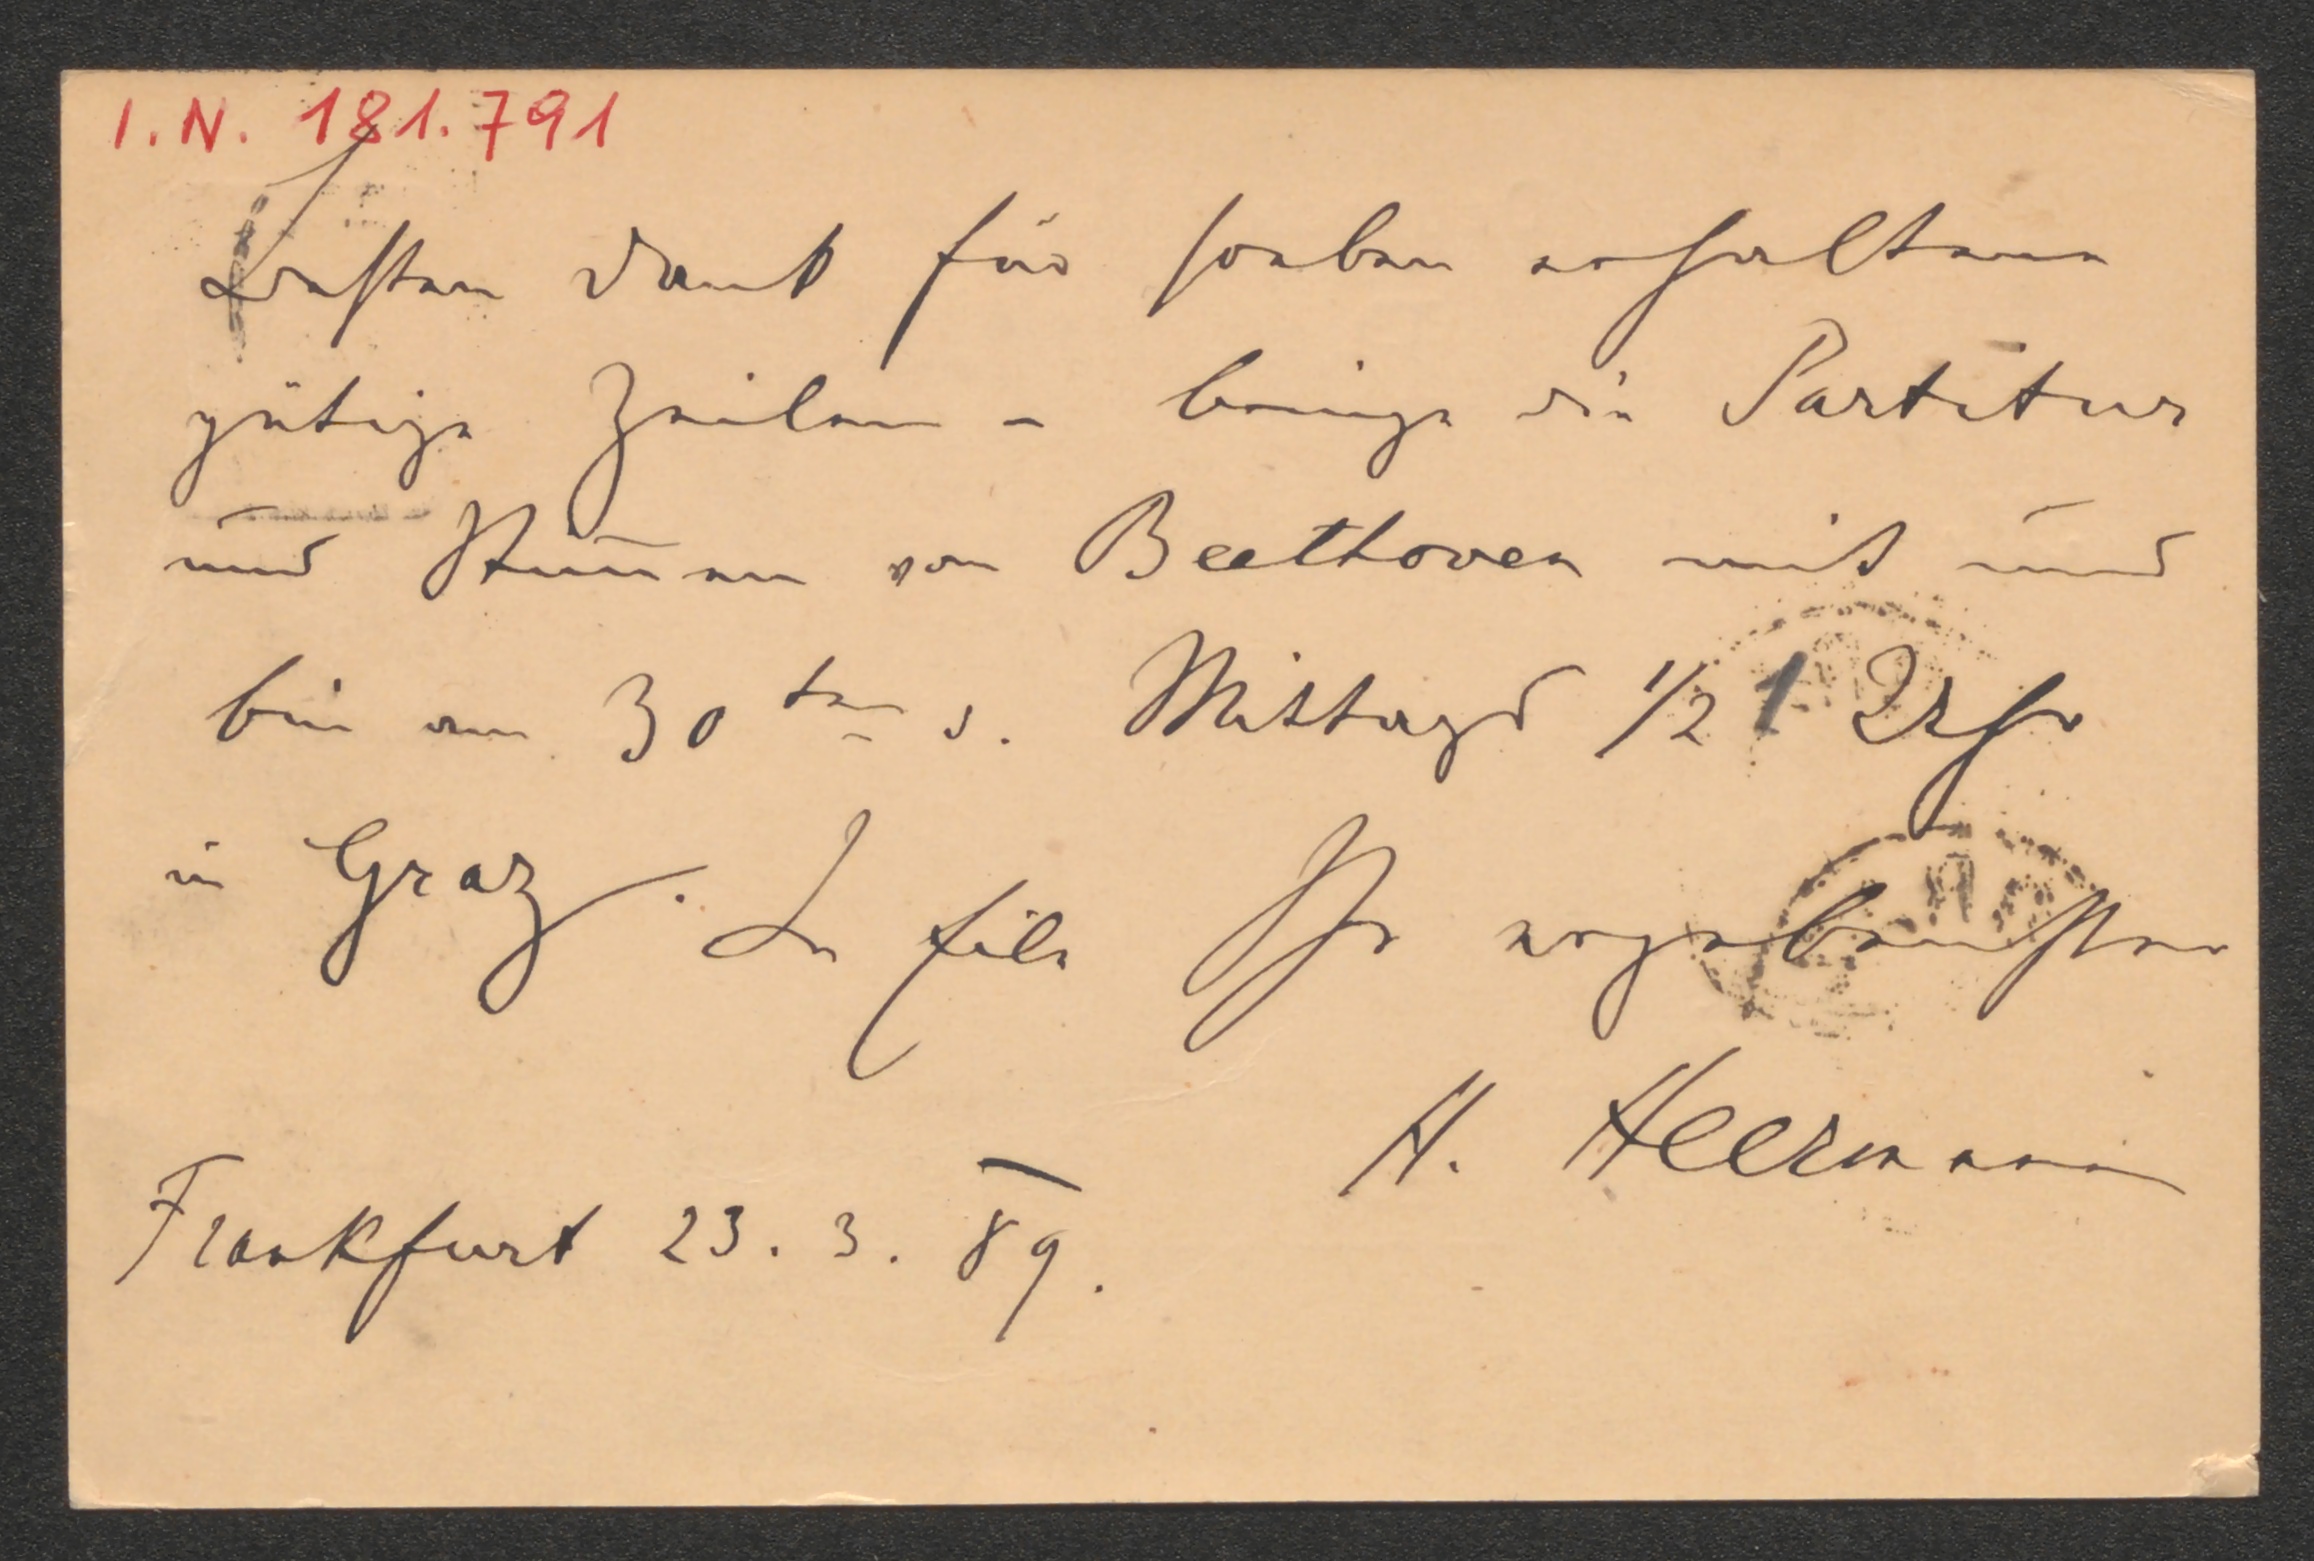 I.N. 181.791
Besten Dank für soeben erhaltene
gütige Zeilen - bringe die Partitur
und Stimmen von Beethoven mit und
bin am 30ten d. Mittags 1/2 1 Uhr
in Graz. In Eile Ihr ergebenster
H. Heermann
Frankfurt 23. 3. 89.